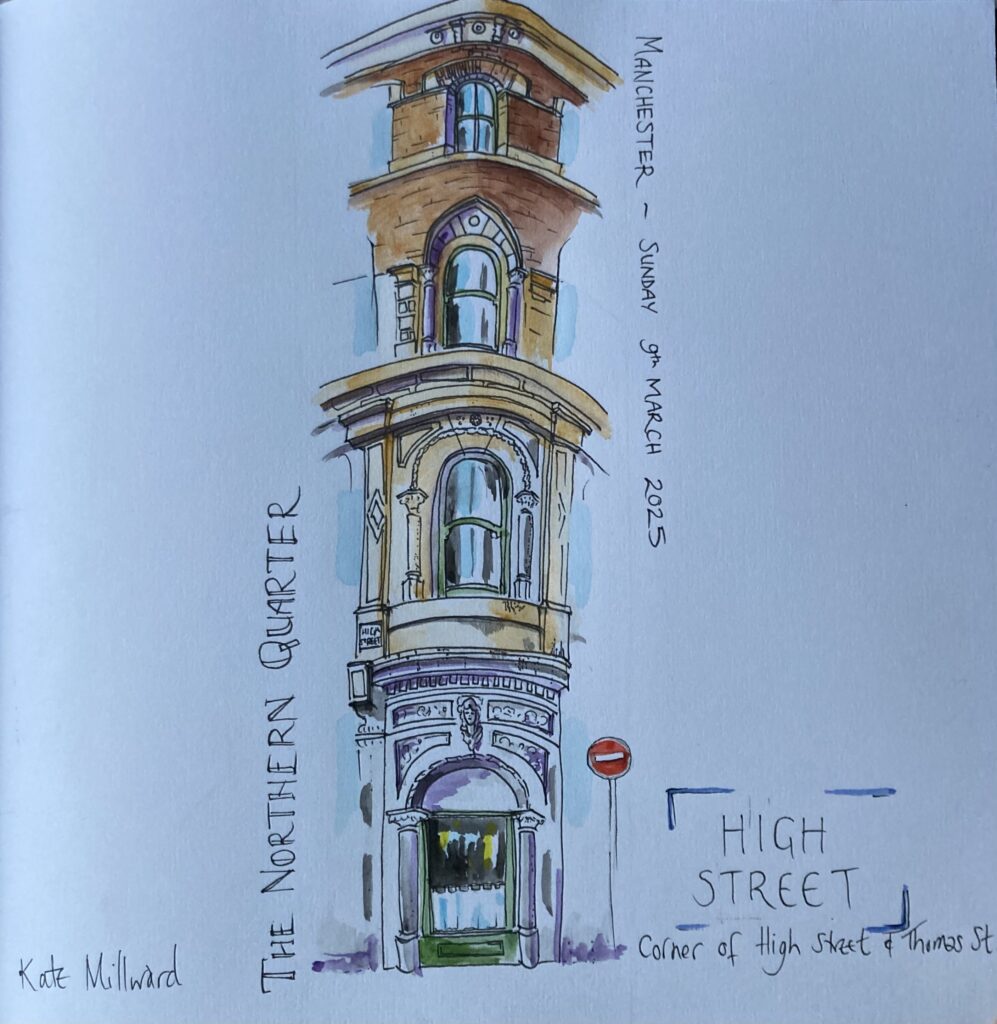 MANCHESTER - SUNDAY 9th MARCH 2025
THE NORTHERN QUARTER
HIGH
STREET
HIGH
STREET
Corner of High Street & Thomas St
Kate Millward